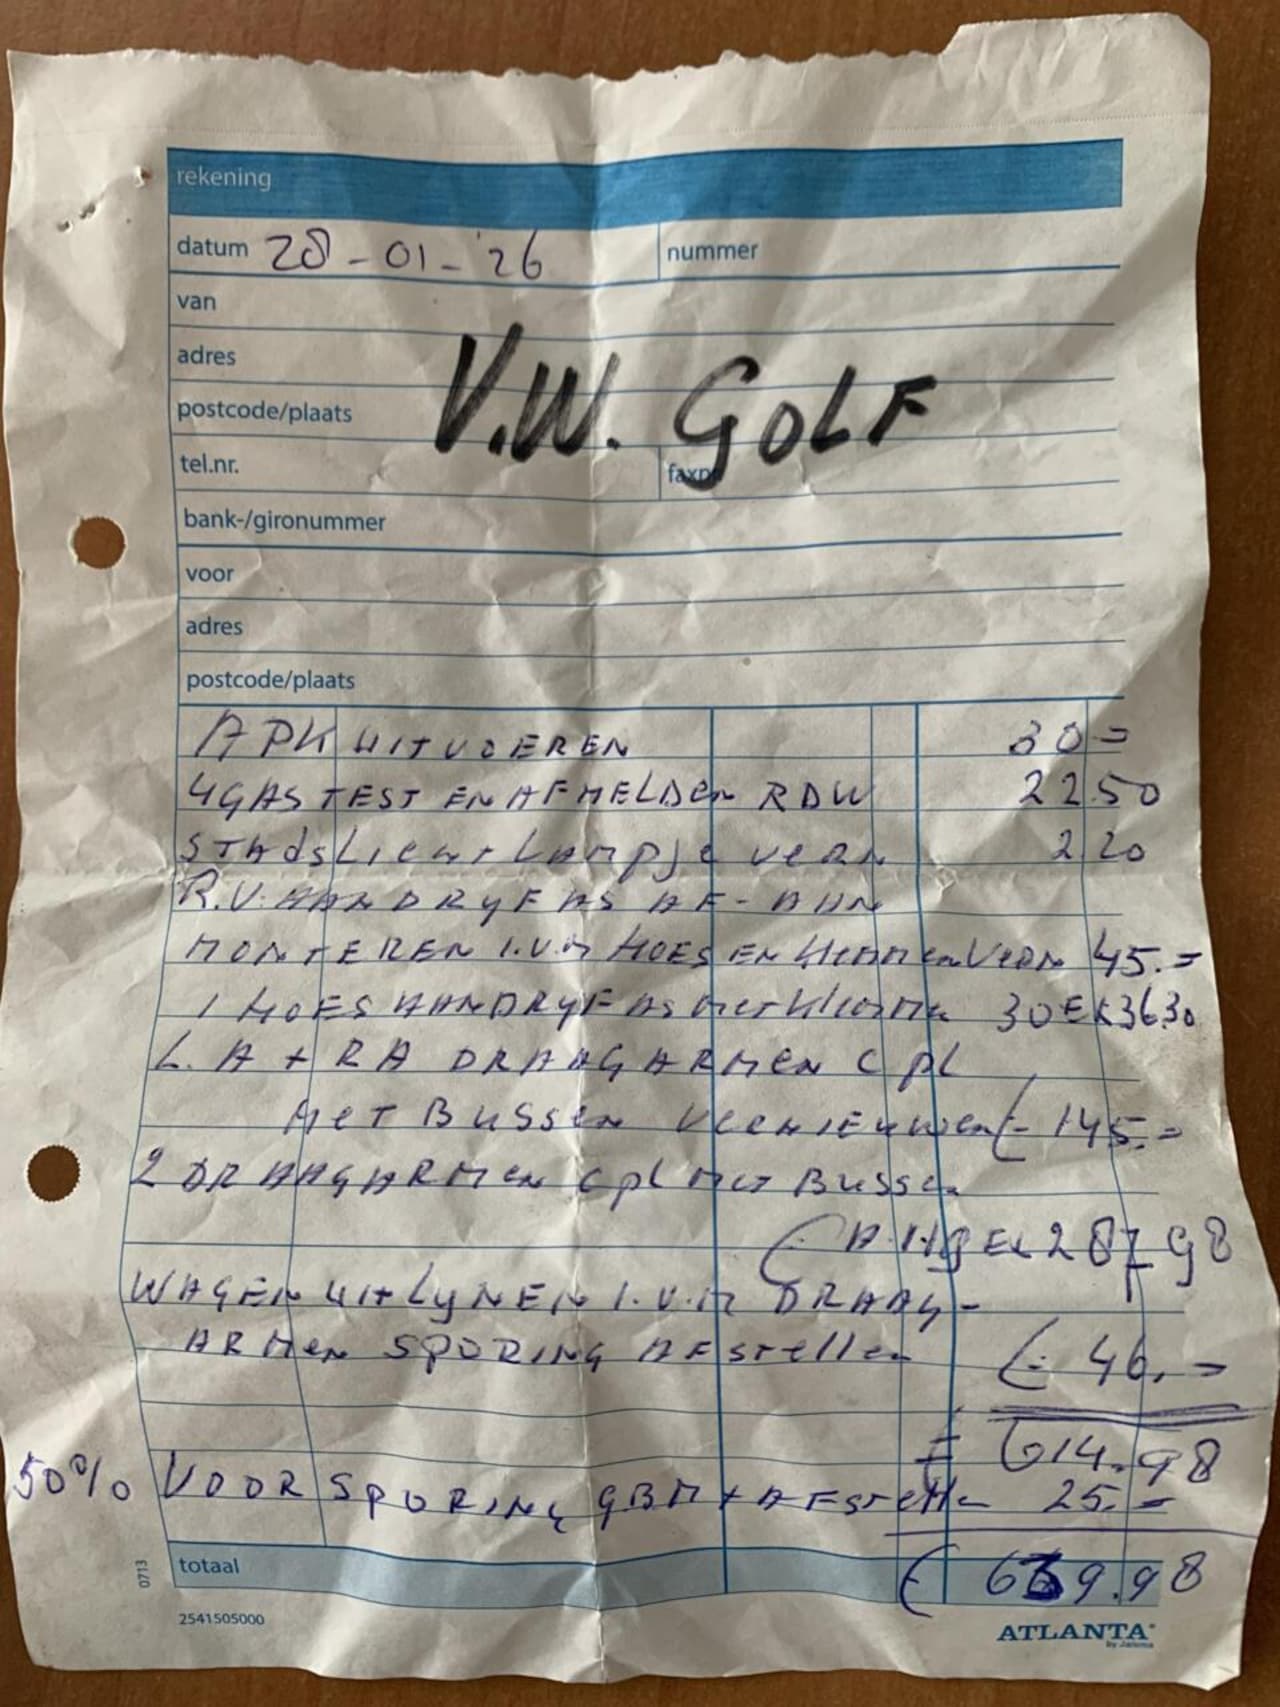 rekening
datum 28-01-'26 nummer
van
adres
V.W. GOLF
postcode/plaats
tel.nr. faxnr
bank-/gironummer
voor
adres
postcode/plaats
APK UITVOEREN 30=
4GASTEST EN AFMELDEN RDW 22.50
STADSLICHT LAMPJE VERN 2.20
R.V. AANDRYFAS AF-AAN
MONTEREN I.V.M HOES EN KLEMMEN VERN 45.=
1 HOES AANDRYFAS MET KLEMMEN 36.30
L.A + RA DRAAGARMEN CPL
MET BUSSEN VERNIEUWEN € 145.=
2 DRAAGARMEN CPL MET BUSSEN
€ 287.98
WAGEN UITLYNEN I.V.M DRAAG-
ARMEN SPORING AFSTELLEN € 46.=
€ 614.98
50% VOOR SPORING GBM + AFSTELLEN 25.=
totaal € 639.98
0713
2541505000
ATLANTA
by Jalema